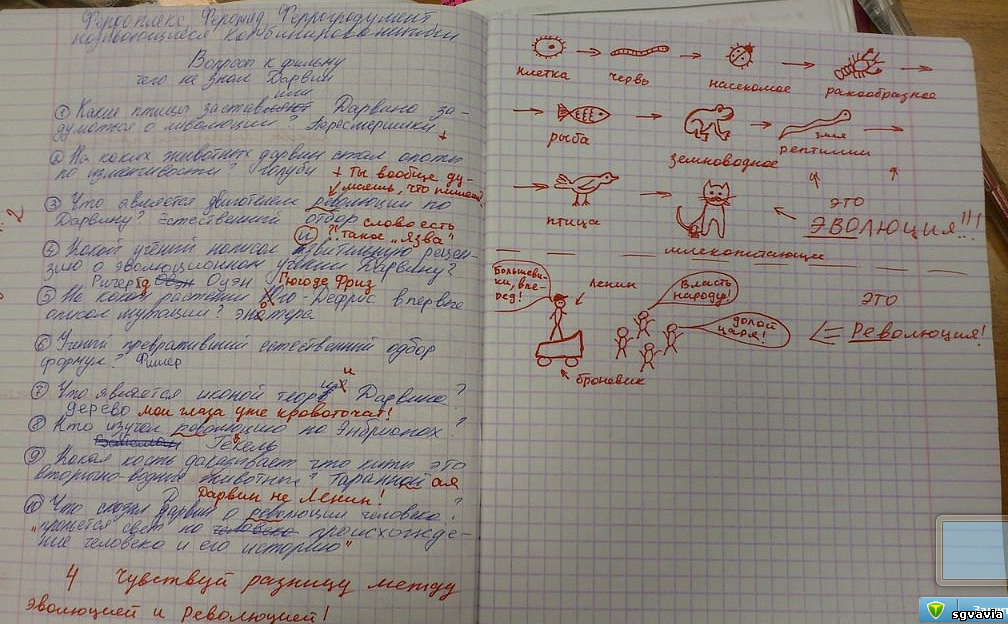 Вопросы к фильму
чего не знал Дарвин
или
① Какие птицы заставляют Дарвина за-
думаться о революции? Пересмешники +
② На каких животных дарвин ставил опыты
по изменчивости? голуби + Ты вообще ду-
маешь, что пишешь?
③ Что является двигателем революции по
Дарвину? Естественный отбор слово есть
такое "Язва"
④ Какой учёный написал рецен-
зию о эволюционном учении Дарвину?
Ричард Оуэн Гюгоде Фриз
⑤ На каком растении Гюго-Дефрис впервые
описал мутации? энотера
⑥ Учёный превративший естественный одбор
формук? Фишер
⑦ Что является иконой теории Дарвина?
дерево мои глаза уже кровоточат!
⑧ Кто изучал революцию на Эмбрионах?
Геккель
⑨ Какая кость доказывает что киты это
вторично-водные животные? Таранной ая
Дарвин не Ленин!
⑩ Что сказал дарвин о революции человека?
"прольётся свет на человека происхожде-
ние человека и его историю"
4 Чувствуй разницу между
эволюцией и революцией!
2
клетка червь насекомое ракообразное
рыба земноводное змея рептилии
птица млекопитающие
это
ЭВОЛЮЦИЯ!!!
Большеви-
ки, впе-
рёд!
Ленин
Власть
народу!
долой
царя!
броневик
это
<= Революция!
sgvavia